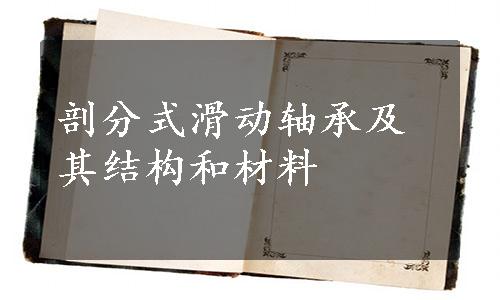 剖分式滑动轴承及
其结构和材料